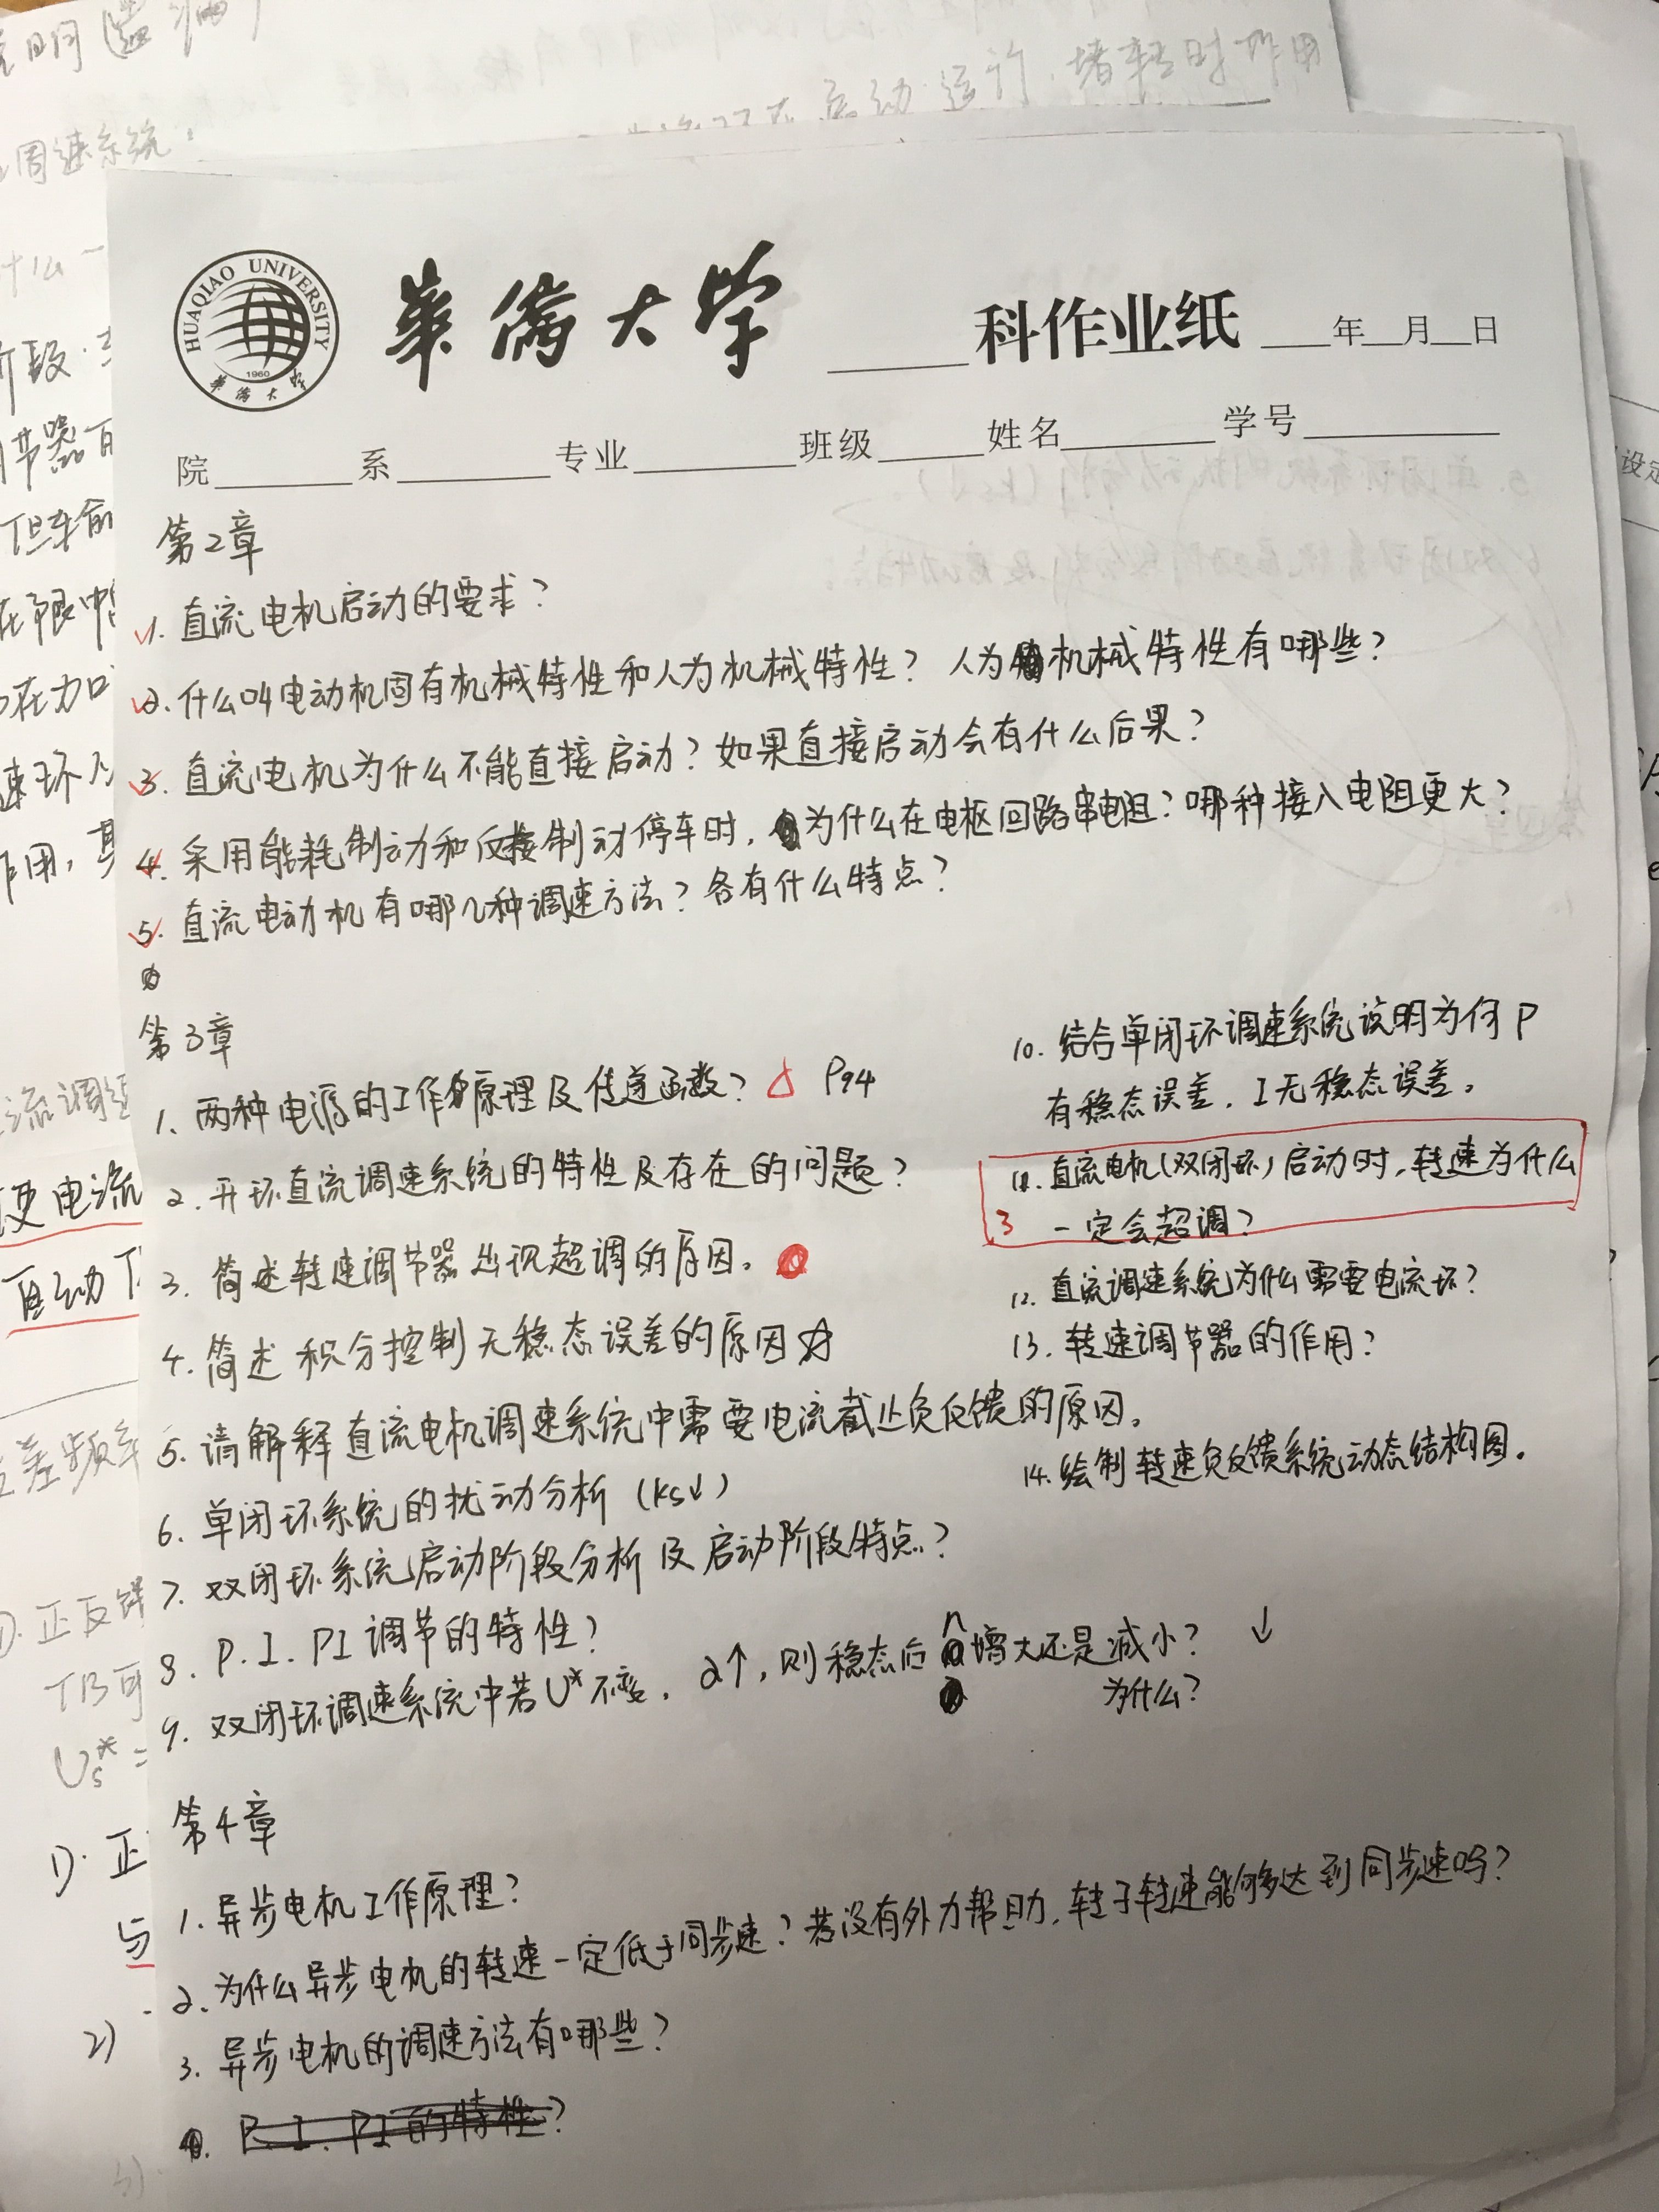 启动运行.堵转时作用
调速系统.
什么一
HUAQIAO UNIVERSITY
1960
华侨大学
華僑大学
科作业纸 年 月 日
院 系 专业 班级 姓名 学号
第2章
1. 直流电机启动的要求?
2. 什么叫电动机固有机械特性和人为机械特性? 人为机械特性有哪些?
3. 直流电机为什么不能直接启动? 如果直接启动会有什么后果?
4. 采用能耗制动和反接制动停车时, 为什么在电枢回路串电阻? 哪种接入电阻更大?
5. 直流电动机有哪几种调速方法? 各有什么特点?
第3章
1、两种电源的工作原理及传递函数? △ P94
2. 开环直流调速系统的特性及存在的问题?
3. 简述转速调节器出现超调的原因。
4. 简述积分控制无稳态误差的原因☆
5. 请解释直流电机调速系统中需要电流截止负反馈的原因。
6. 单闭环系统的扰动分析 (ks↓)
7. 双闭环系统启动阶段分析及启动阶段特点?
8. P. I. PI 调节的特性?
9. 双闭环调速系统中若U*不变, α↑, 则稳态后n增大还是减小? ↓
为什么?
10. 结合单闭环调速系统说明为何P
有稳态误差, I无稳态误差。
11. 直流电机(双闭环)启动时, 转速为什么
3 一定会超调?
12. 直流调速系统为什么需要电流环?
13. 转速调节器的作用?
14. 绘制转速负反馈系统动态结构图。
第4章
1. 异步电机工作原理?
2. 为什么异步电机的转速一定低于同步速? 若没有外力帮助, 转子转速能够达到同步速吗?
3. 异步电机的调速方法有哪些?
P. I. PI 的特性?
阶段.
节器
但车前
速环
作用, 其
流调速
变电流
自动
差频率
正反馈
Us* =
1). 正
与
2)
设定